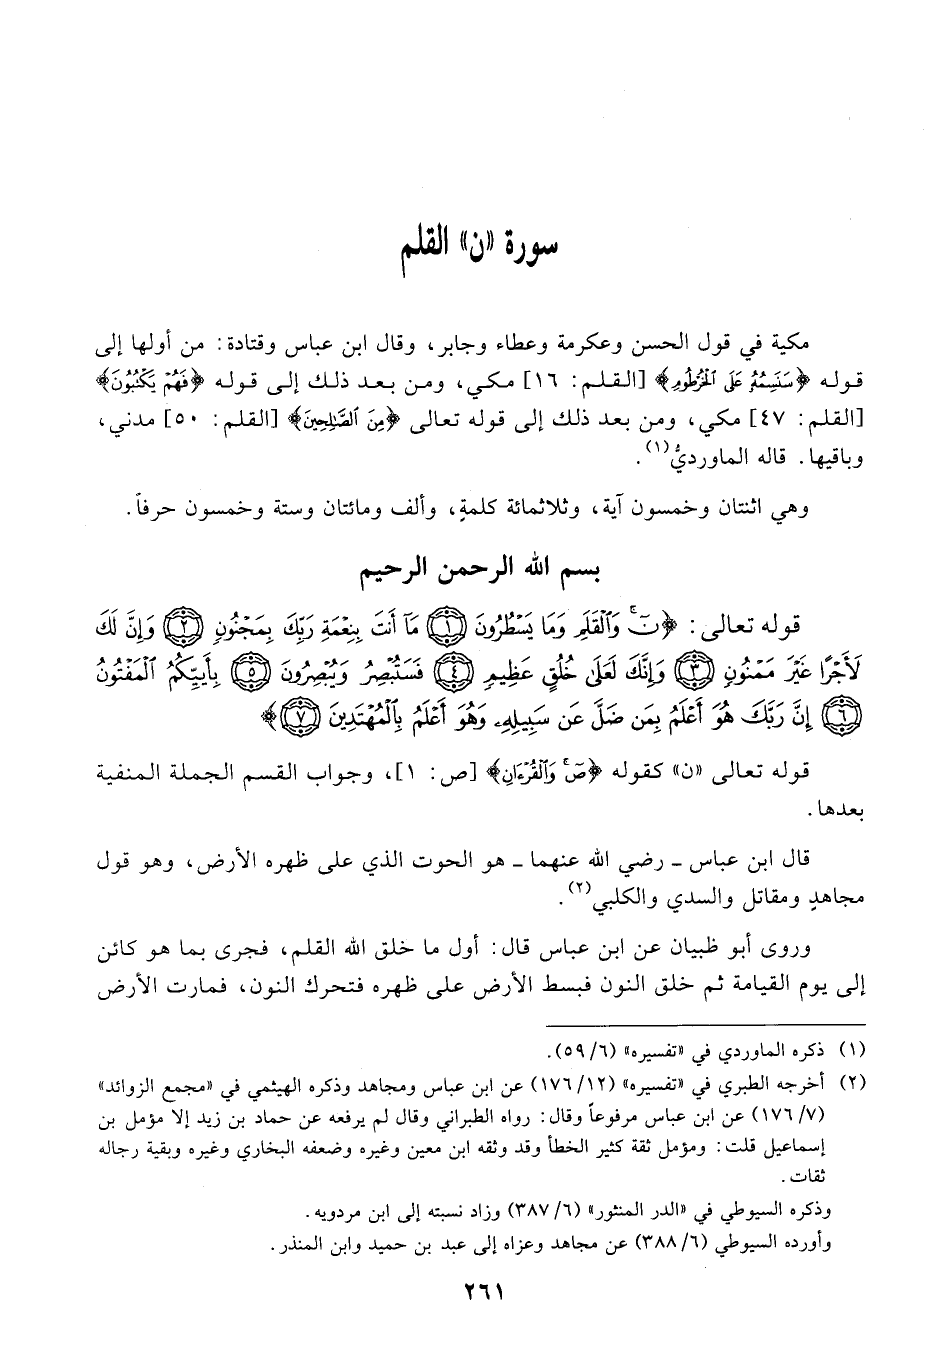 سورة «ن» القلم
مكية في قول الحسن وعكرمة وعطاء وجابر، وقال ابن عباس وقتادة: من أولها إلى
قوله ﴿سَنَسِمُهُ عَلَى الْخُرْطُومِ﴾ [القلم: ١٦] مكي، ومن بعد ذلك إلى قوله ﴿فَهُمْ يَكْتُبُونَ﴾
[القلم: ٤٧] مكي، ومن بعد ذلك إلى قوله تعالى ﴿مِنَ الصَّالِحِينَ﴾ [القلم: ٥٠] مدني،
وباقيها. قاله الماورديُّ(١).
وهي اثنتان وخمسون آية، وثلاثمائة كلمةٍ، وألف ومائتان وستة وخمسون حرفاً.
بسم الله الرحمن الرحيم
قوله تعالى: ﴿نٓ وَالْقَلَمِ وَمَا يَسْطُرُونَ ١ مَآ أَنتَ بِنِعْمَةِ رَبِّكَ بِمَجْنُونٍ ٢ وَإِنَّ لَكَ
لَأَجْرًا غَيْرَ مَمْنُونٍ ٣ وَإِنَّكَ لَعَلَى خُلُقٍ عَظِيمٍ ٤ فَسَتُبْصِرُ وَيُبْصِرُونَ ٥ بِأَييِّكُمُ الْمَفْتُونُ
٦ إِنَّ رَبَّكَ هُوَ أَعْلَمُ بِمَن ضَلَّ عَن سَبِيلِهِ وَهُوَ أَعْلَمُ بِالْمُهْتَدِينَ ٧﴾
قوله تعالى «ن» كقوله ﴿صٓ وَالْقُرْءَانِ﴾ [ص: ١]، وجواب القسم الجملة المنفية
بعدها.
قال ابن عباس ـ رضي الله عنهما ـ هو الحوت الذي على ظهره الأرض، وهو قول
مجاهدٍ ومقاتل والسدي والكلبي(٢).
وروى أبو ظبيان عن ابن عباس قال: أول ما خلق الله القلم، فجرى بما هو كائن
إلى يوم القيامة ثم خلق النون فبسط الأرض على ظهره فتحرك النون، فمارت الأرض
(١) ذكره الماوردي في «تفسيره» (٥٩/٦).
(٢) أخرجه الطبري في «تفسيره» (١٧٦/١٢) عن ابن عباس ومجاهد وذكره الهيثمي في «مجمع الزوائد»
(١٧٦/٧) عن ابن عباس مرفوعاً وقال: رواه الطبراني وقال لم يرفعه عن حماد بن زيد إلا مؤمل بن
إسماعيل قلت: ومؤمل ثقة كثير الخطأ وقد وثقه ابن معين وغيره وضعفه البخاري وغيره وبقية رجاله
ثقات.
وذكره السيوطي في «الدر المنثور» (٣٨٧/٦) وزاد نسبته إلى ابن مردويه.
وأورده السيوطي (٣٨٨/٦) عن مجاهد وعزاه إلى عبد بن حميد وابن المنذر.
٢٦١